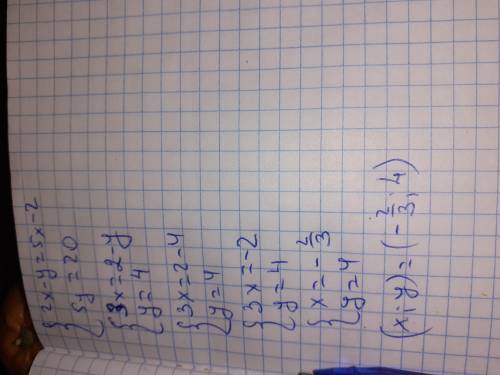 {2x-y=5x-2
{5y=20
{3x=2-y
{y=4
{3x=2-4
{y=4
{3x=-2
{y=4
{x=-2/3
{y=4
(x;y)=(-2/3;4)